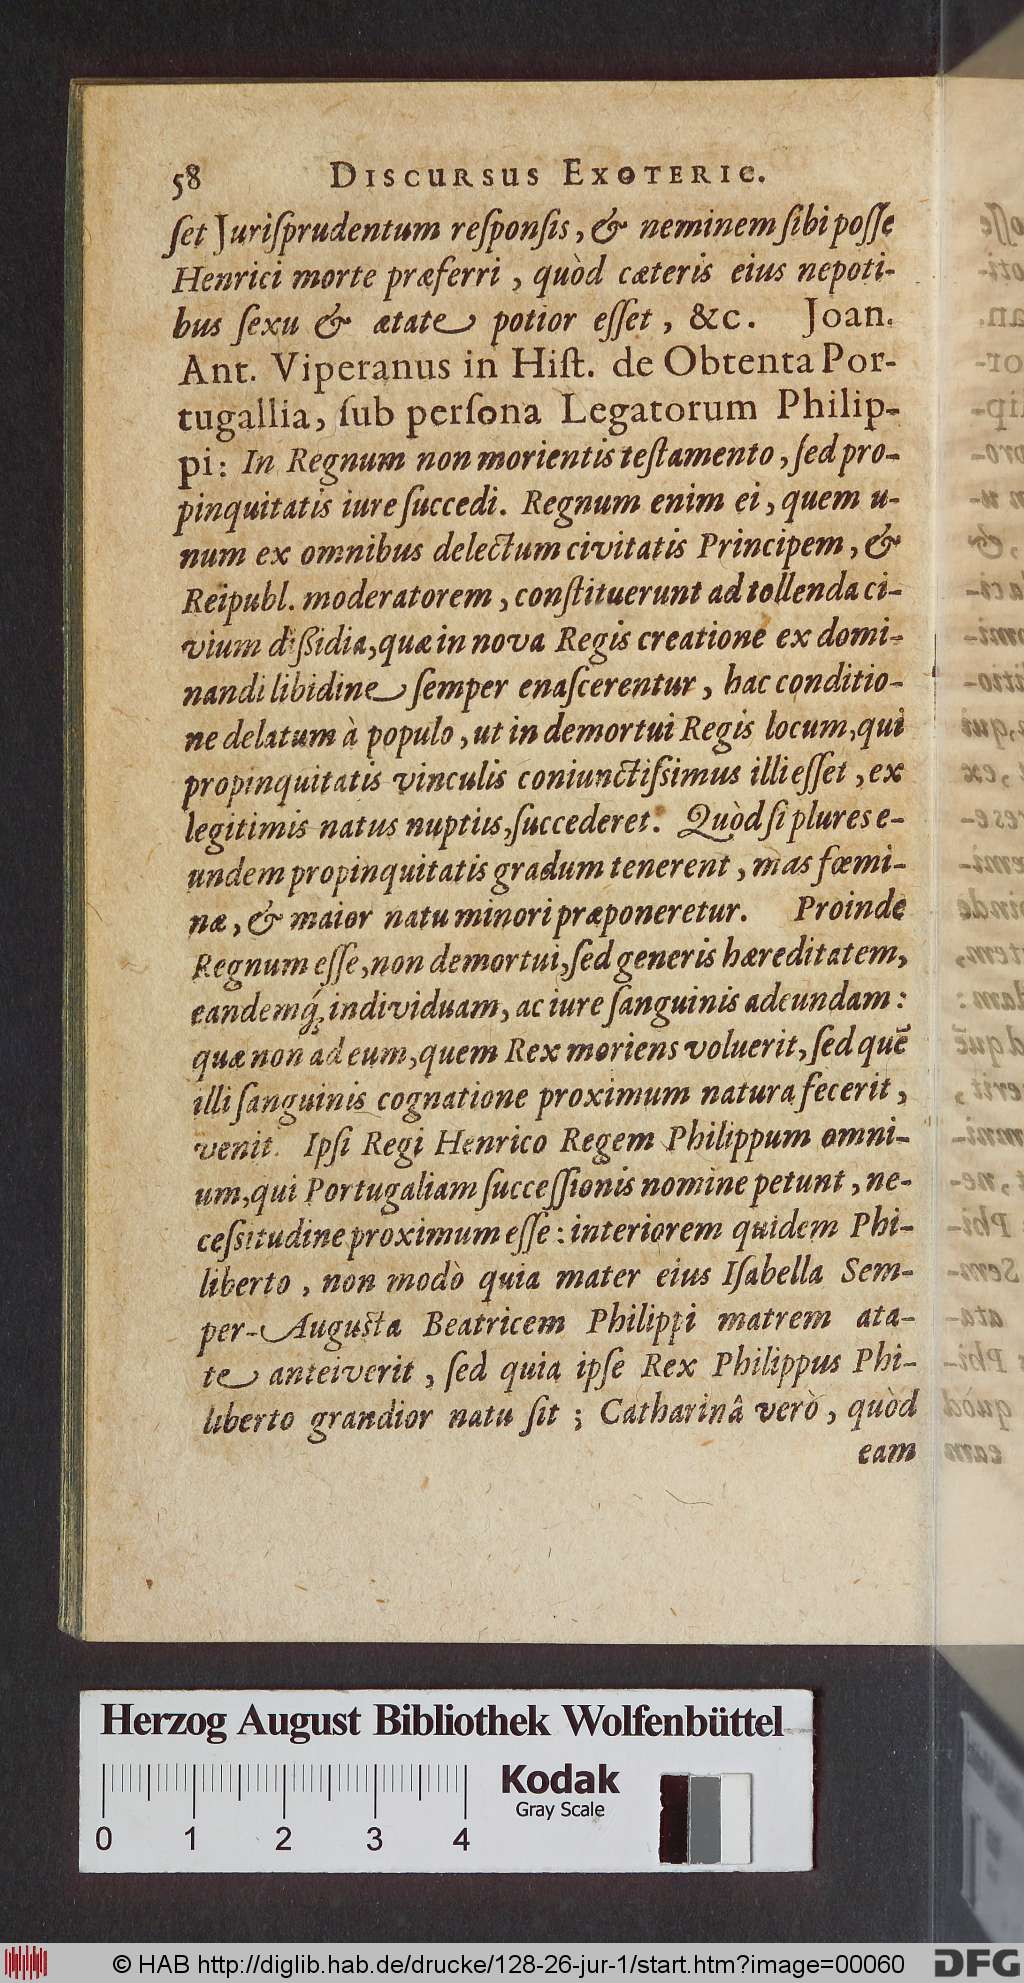 58 DISCURSUS EXOTERIC.
ſet Juriſprudentum reſponſis, & neminem ſibi poſſe
Henrici morte præferri, quòd cæteris eius nepoti-
bus ſexu & ætate potior eſſet, &c. Joan.
Ant. Viperanus in Hiſt. de Obtenta Por-
tugallia, ſub perſona Legatorum Philip-
pi: In Regnum non morientis teſtamento, ſed pro-
pinquitatis iure ſuccedi. Regnum enim ei, quem u-
num ex omnibus delectum civitatis Principem, &
Reipubl. moderatorem, conſtituerunt ad tollenda ci-
vium diſſidia, quæ in nova Regis creatione ex domi-
nandi libidine ſemper enaſcerentur, hac conditio-
ne delatum à populo, ut in demortui Regis locum, qui
propinquitatis vinculis coniunctiſsimus illi eſſet, ex
legitimis natus nuptiis, ſuccederet. Quòd ſi plures e-
undem propinquitatis gradum tenerent, mas fœmi-
næ, & maior natu minori præponeretur. Proinde
Regnum eſſe, non demortui, ſed generis hæreditatem,
eandemq́; individuam, ac iure ſanguinis adeundam:
quæ non ad eum, quem Rex moriens voluerit, ſed quē
illi ſanguinis cognatione proximum natura fecerit,
venit. Ipſi Regi Henrico Regem Philippum omni-
um, qui Portugaliam ſucceſſionis nomine petunt, ne-
ceſsitudine proximum eſſe: interiorem quidem Phi-
liberto, non modò quia mater eius Iſabella Sem-
per-Auguſta Beatricem Philippi matrem æta-
te anteiverit, ſed quia ipſe Rex Philippus Phi-
liberto grandior natu ſit; Catharinâ verò, quòd
eam
Herzog August Bibliothek Wolfenbüttel
Kodak
Gray Scale
0 1 2 3 4
© HAB http://diglib.hab.de/drucke/128-26-jur-1/start.htm?image=00060
DFG